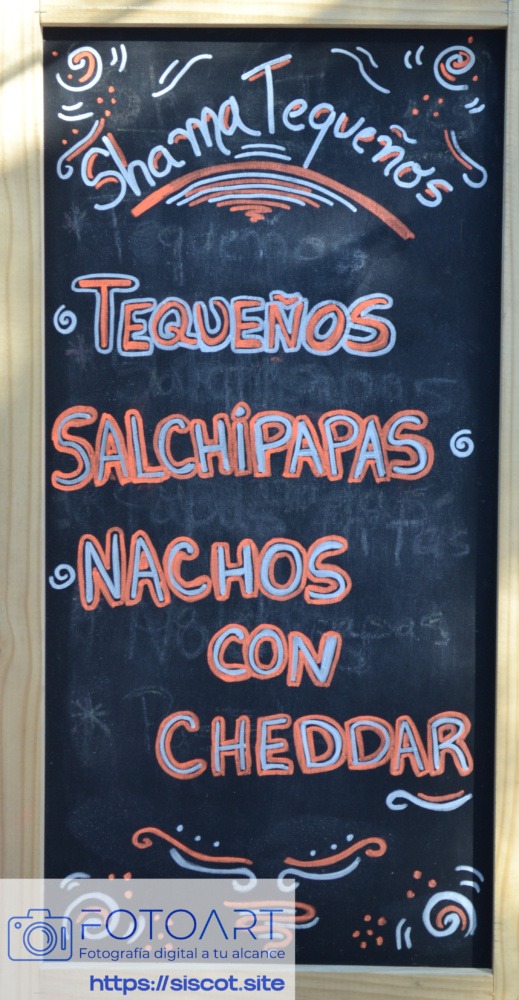 Shama Tequeños
TEQUEÑOS
SALCHiPAPAS
NACHOS
CON
CHEDDAR
FOTOART
Fotografía digital a tu alcance
https://siscot.site